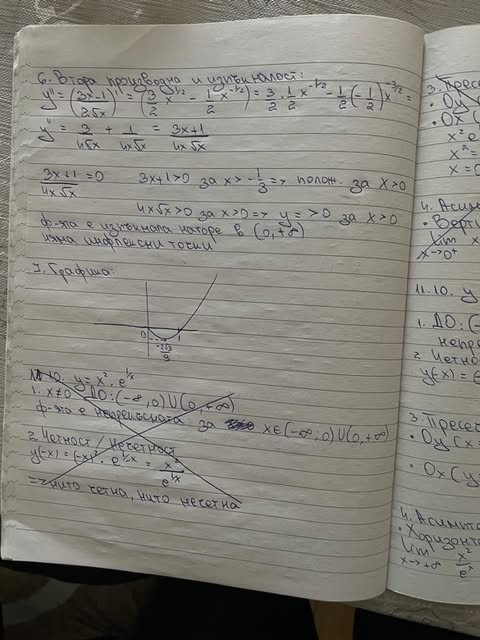 6. Втора производна и изпъкналост:
y'' = (3x-1 / 2√x)' = (3/2 x^1/2 - 1/2 x^-1/2)' = 3/2 · 1/2 x^-1/2 - 1/2 (-1/2) x^-3/2 =
y'' = 3/4√x + 1/4x√x = 3x+1 / 4x√x
3x+1 / 4x√x = 0 3x+1>0 за x>-1/3 => полож. за x>0
4x√x>0 за x>0 => y''>0 за x>0
ф-ята е изпъкнала нагоре в (0,+∞)
няма инфлексни точки
7. Графика:
0 1
-2√3
9
10. y = x² · e^1/x
1. x≠0 ДО: (-∞,0)U(0,+∞)
ф-ята е непрекъсната за x∈(-∞,0)U(0,+∞)
2. Четност / Нечетност
y(-x) = (-x)² · e^-1/x = x² / e^1/x
=> нито четна, нито нечетна
3. Пресе
• Оу
• Ох (
x² e
x² =
x = 0
4. Асим
• Верти
lim x
x→0⁺
11.10. y
1. ДО: (-
непре
2. Четно
y(-x) = (
3. Пресе
• Оу (x =
• Ох (y
4. Асимпт
• Хоризонт
lim x²
x→+∞ e